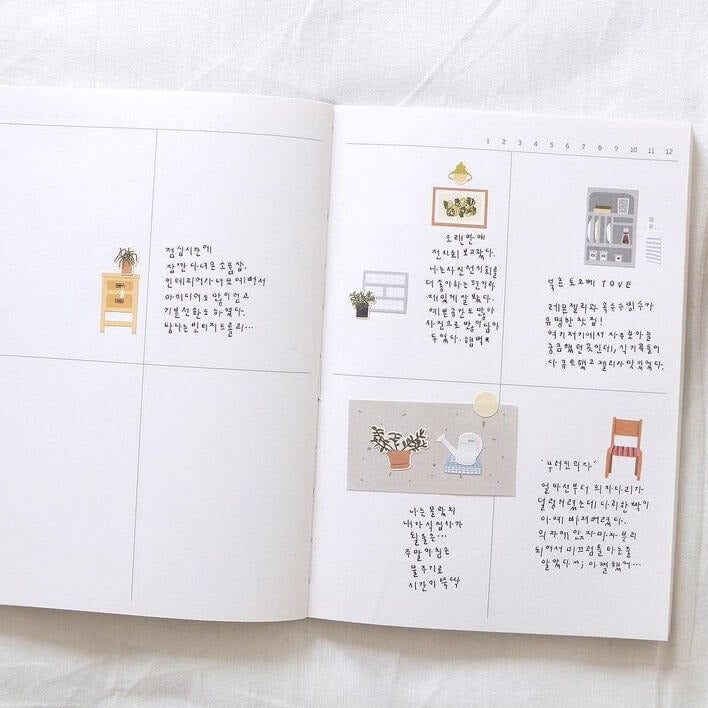 점심시간에
잠깐 다녀온 소품샵.
인테리어가 너무 예뻐서
아이디어도 많이 얻고
기분전환도 하였다.
탐나는 빈티지 트롤리...
1 2 3 4 5 6 7 8 9 10 11 12
오랜만에
전시회 보고왔다.
나는 사진전시회를
더 좋아하는 편이라
재밌게 잘 봤다.
예쁜공간도 많아
사진으로 많이 담아
두었다.
토오베 TOVE
레몬젤리와 옥수수빙수가
유명한 찻집!
여기저기에서 자주 보아 늘
궁금했던 곳인데, 식기류들이
다 귀엽했고 젤리가 맛있었다.
나는 몰랐지
내가 식집사가
될 줄은...
주말 아침은
물주기로
시간이 뚝딱
'부러진 의자'
얼마전부터 의자다리가
덜렁거렸는데 다리 한짝이
아예 빠져버렸다.
의자에 앉자마자 분리
되어서 미끄럼틀 타는줄
알았다ㅋㅋ; 아찔했어...